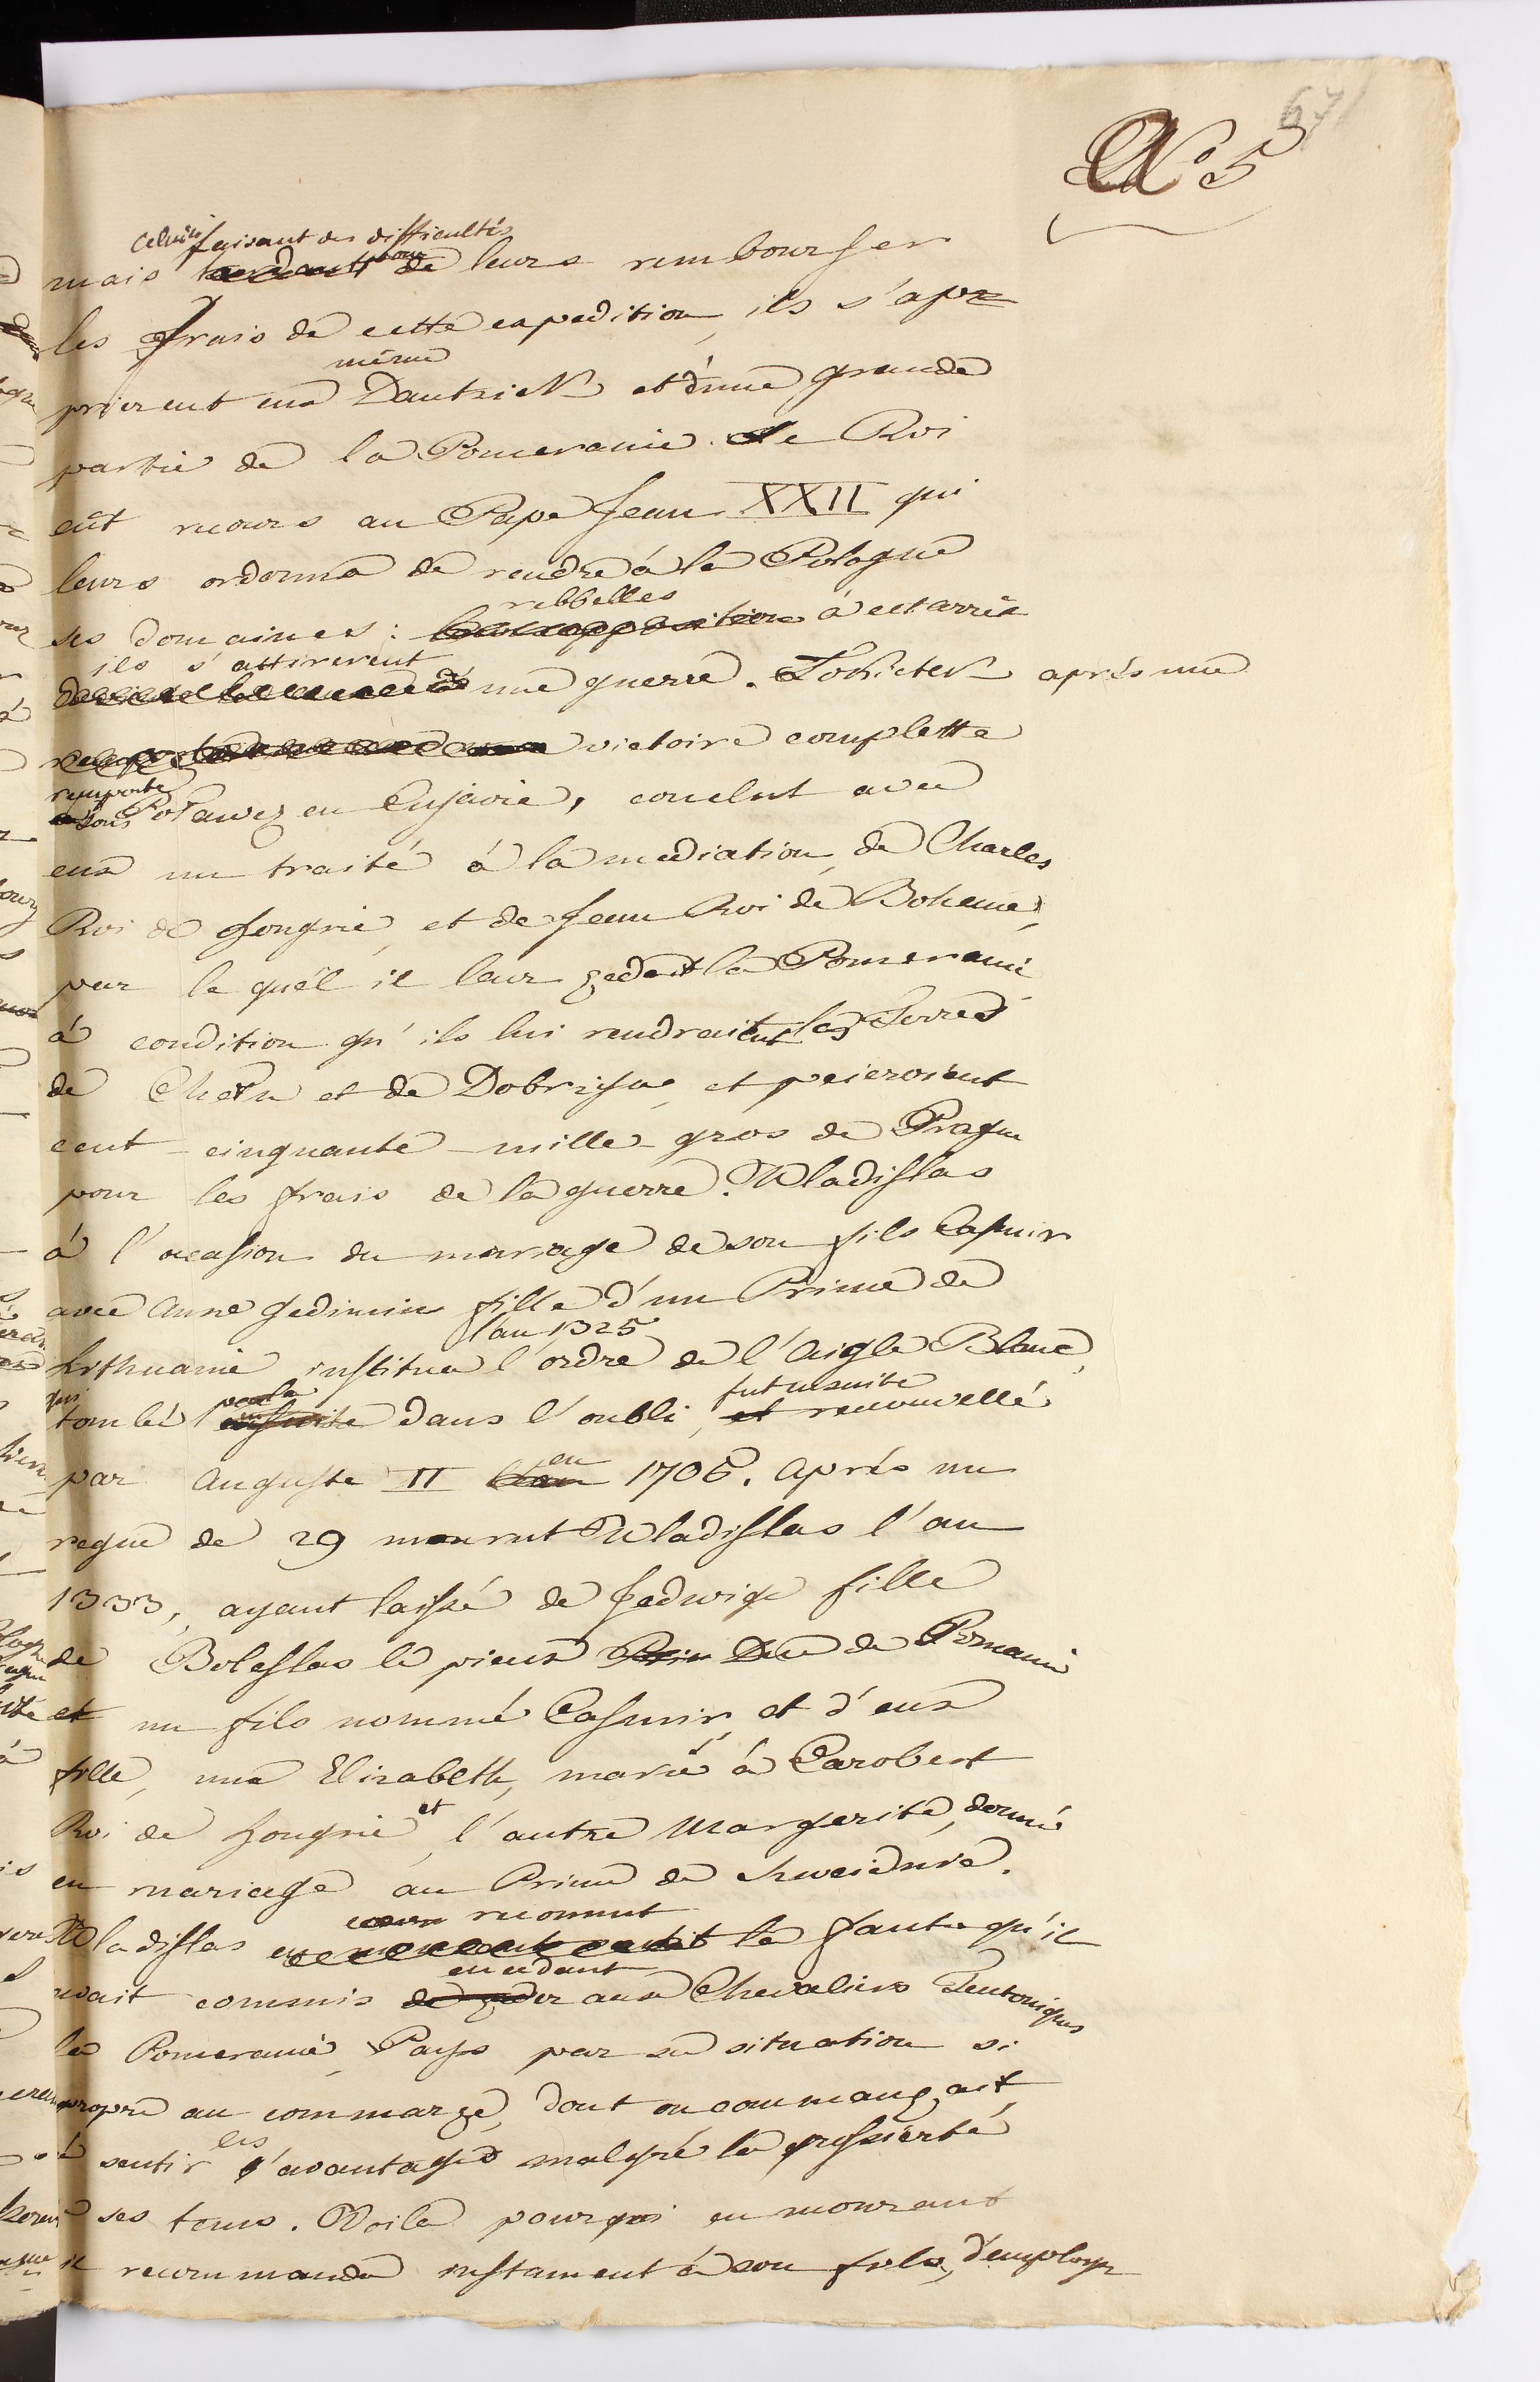 67
N° 5
celuici faisant des difficultés
mais pour de leurs rembourser
les frais de cette expedition, ils s'apro
même
prierent eux Dantzick et d'une grande
partie de la Pomeranie. Le Roi
eût recours au Pape Jean XXII qui
leurs ordonna de rendre á la Pologne
rebbelles
ses domaines: á cet arrêt
ils s'attirerent
une guerre. Łokietek aprés une
victoire complette
remporté
sous Poławcz en Cujavie, conclut avec
eux un traité á la mediation de Charles
Roi de Hongrie, et de Jean Roi de Boheme,
par le quél il leur zedait la Pomeranie
á condition qu'ils lui rendraient les Terres
de Chełm et de Dobrzyn, et paieroient
cent cinquante mille gros de Prague
pour les frais de la guerre. Wladislas
á l'ocasion du mariage de son fils Casimir
avec Anne Gedimin fille d'un Prince de
l'an 1325
Lithuanie institua l'ordre de l'Aigle Blanc,
qui
fut ensuite
tombé ensuite dans l'oubli, et renouvellé
en
par Auguste II l'an 1705. Aprés un
regne de 29 mourut Wladislas l'an
1333, ayant laissé de Hedwige fille
de Boleslas le pieux Prin Duc de Pomanie
et un fils nommé Casimir, et d'eux
fille, une Elizabeth, marié á Carobert
et
Roi de Hongrie, l'autre Margerite, donné
en mariage au Prince de Schweidnic.
reconnut
Wladislas la faute qu'il
en cedant
avait commis de zeder aux Chevaliers Teutoniques
la Pomeranie, Pays par sa situation si
propre au commerze, dont on commançait
les
á sentir l'avantages malgré la grossierté
ses tems. Voila pourqoi en mourant
il recommanda instament á son fils, d'employer